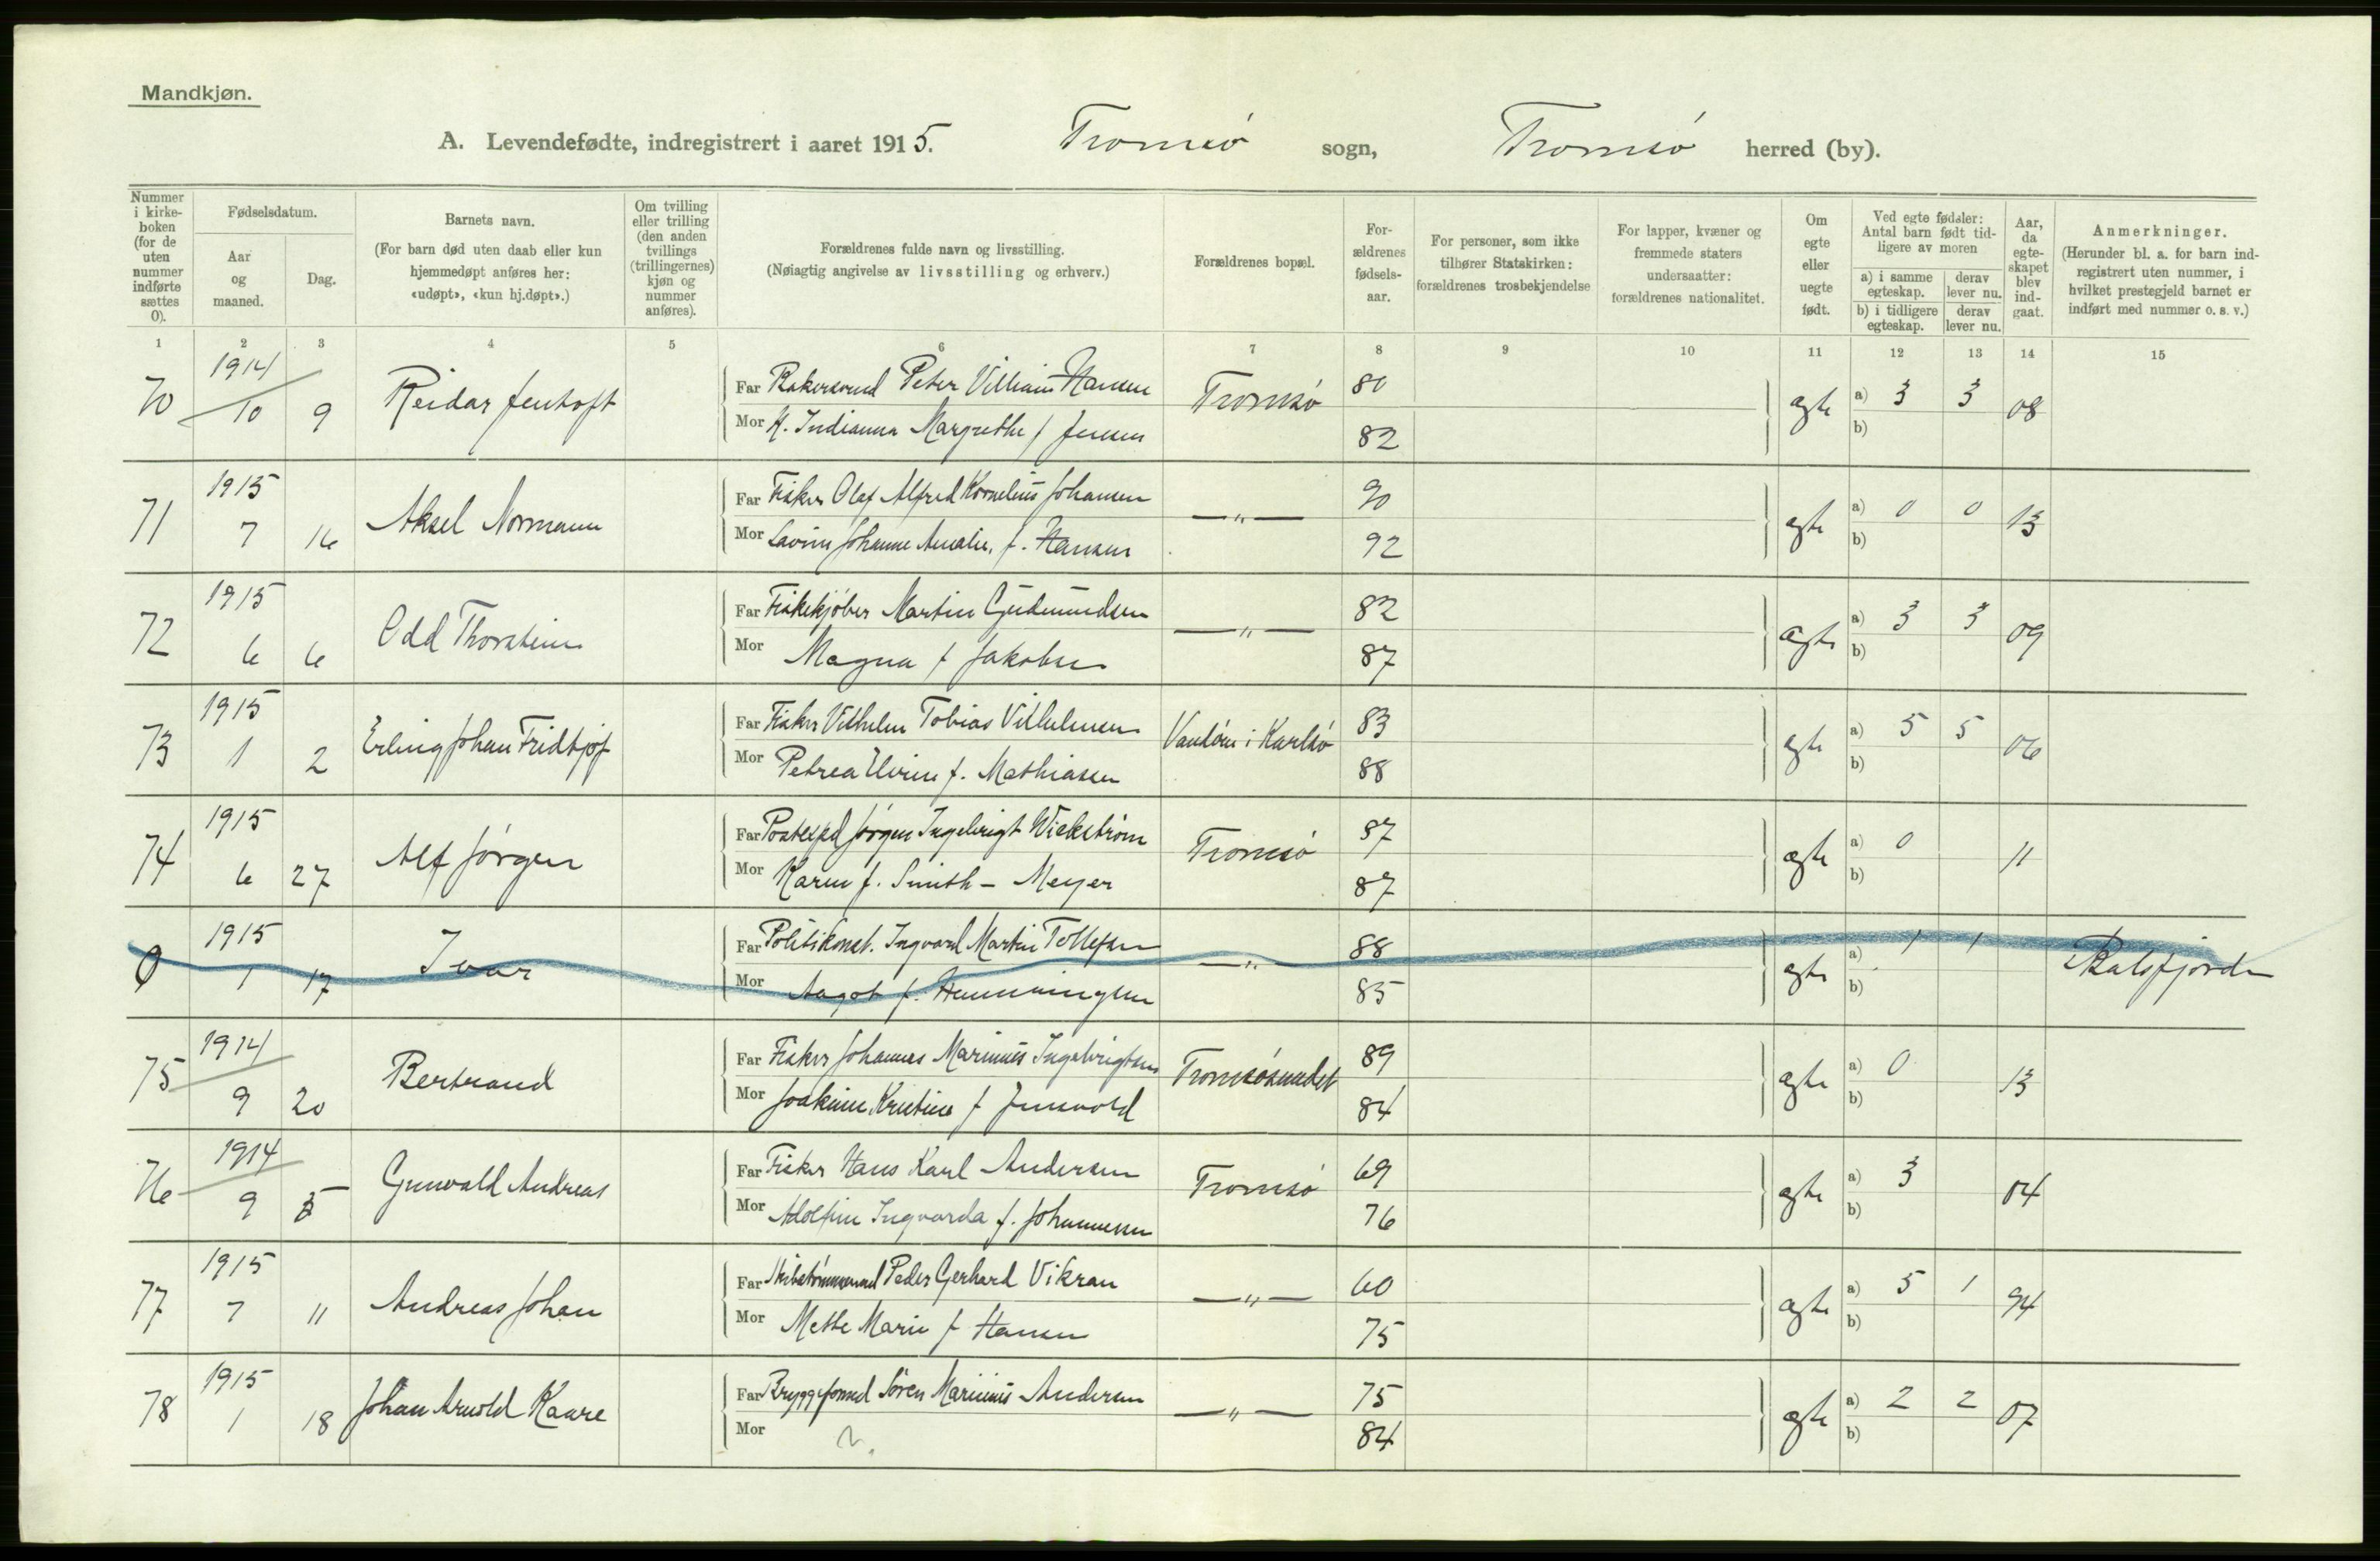 Mandkjøn.
A. Levendefødte, indregistrert i aaret 1915. Tromsø sogn, Tromsø herred (by).
Nummer i kirkeboken (for de uten nummer indførte sættes 0).
Fødselsdatum.
Aar og maaned.
Dag.
Barnets navn.
(For barn død uten daab eller kun hjemmedøpt anføres her: «udøpt», «kun hj.døpt».)
Om tvilling eller trilling (den anden tvillings (trillingernes) kjøn og nummer anføres).
Forældrenes fulde navn og livsstilling.
(Nøiagtig angivelse av livsstilling og erhverv.)
Forældrenes bopæl.
Forældrenes fødselsaar.
For personer, som ikke tilhører Statskirken: forældrenes trosbekjendelse
For lapper, kvæner og fremmede staters undersaatter: forældrenes nationalitet.
Om egte eller uegte født.
Ved egte fødsler: Antal barn født tidligere av moren
a) i samme egteskap. derav lever nu.
b) i tidligere egteskap. derav lever nu.
Aar, da egteskapet blev indgaat.
Anmerkninger.
(Herunder bl. a. for barn indregistrert uten nummer, i hvilket prestegjeld barnet er indført med nummer o. s. v.)
1 2 3 4 5 6 7 8 9 10 11 12 13 14 15
70 1914 10 9 Reidar Jentoft Far Peter Villiam Hansen Tromsø 80 egte a) 3 3 08
Mor K. Indianna Margrethe f Jensen 82 b)
71 1915 7 16 Aksel Normann Far Fisker Olaf Alfred Kornelius Johansen —„— 90 egte a) 0 0 13
Mor Lavine Johanne Amalie, f. Hansen 92 b)
72 1915 6 6 Odd Thorstein Far Fiskekjøber Martin Gudmundsen —„— 82 egte a) 3 3 09
Mor Magna f Jakobsen 87 b)
73 1915 1 2 Erling Johan Fridtjof Far Fisker Vilhelm Tobias Vilhelmsen i Karlsø 83 egte a) 5 5 06
Mor Petrea Elvine f. Mathiassen 88 b)
74 1915 6 27 Alf Jørgen Far Postexpd Jørgen Ingebrigt Wickstrøm Tromsø 87 egte a) 0 11
Mor Karen f. Smith - Meyer 87 b)
0 1915 1 17 Ivar Far Politikonst. Ingvard Martin Tollefsen —„— 88 egte a) 1 1 Balsfjorden
Mor Aagot f. Henningsen 85 b)
75 1914 9 20 Bertrand Far Fisker Johannes Marinius Ingebrigtsen Tromsøsundet 89 egte a) 0 13
Mor Joakime Kristine f Jensvold 84 b)
76 1914 9 5 Gunvald Andreas Far Fisker Hans Karl Andersen Tromsø 69 egte a) 3 04
Mor Adolfine Ingvarda f. Johannesen 76 b)
77 1915 7 11 Andreas Johan Far Skibstømmermd Peder Gerhard Vikran —„— 60 egte a) 5 1 94
Mor Mette Marie f Hansen 75 b)
78 1915 1 18 Johan Arnold Kaare Far Bryggeformd Søren Marinius Andersen —„— 75 egte a) 2 2 07
Mor ?. 84 b)